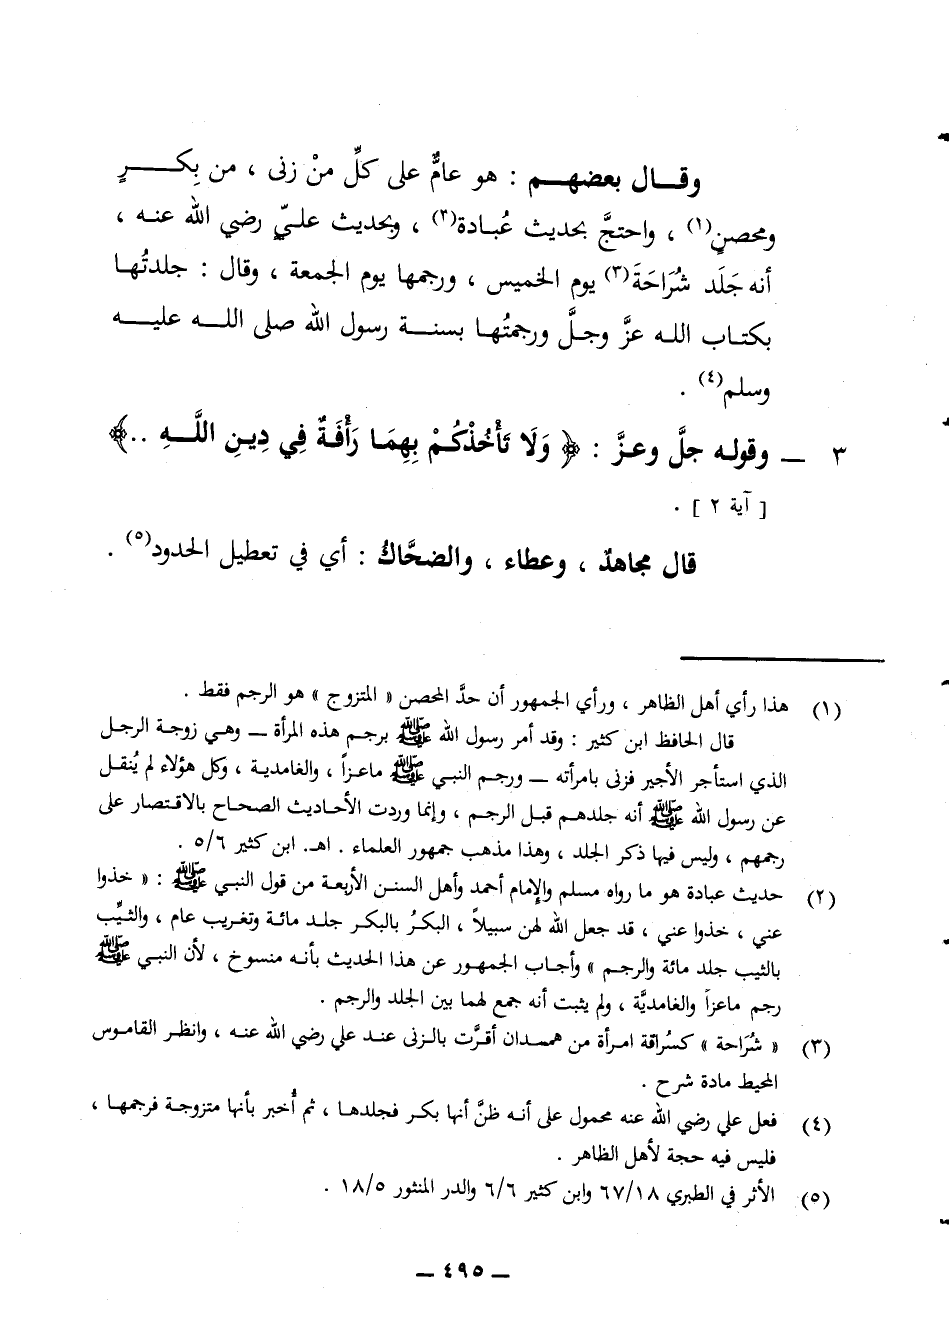 وقــال بعضهــم : هو عامٌّ على كلِّ منْ زنى ، من بِكــــرٍ
ومحصنٍ(١) ، واحتجَّ بحديث عُبـادة(٢) ، وبحديث عليّ رضي الله عنـه ،
أنه جَلَد شُرَاحَةَ(٣) يوم الخميس ، ورجمها يوم الجمعة ، وقال : جلدتُهـا
بكتـاب اللـه عزَّ وجلَّ ورجمتُهـا بسنـــة رسول الله صلى اللــه عليـــه
وسلم(٤) .
٣ ــ وقولـه جلَّ وعـزَّ : ﴿ وَلَا تَأْخُذْكُمْ بِهِمَـا رَأْفَةٌ فِي دِيـنِ اللَّــهِ ..﴾
[ آية ٢ ] .
قال مجاهدٌ ، وعطاء ، والضحَّاكُ : أي في تعطيل الحدود(٥) .
(١) هذا رأي أهل الظاهر ، ورأي الجمهور أن حدَّ المحصن « المتزوج » هو الرجم فقط .
قال الحافظ ابن كثير : وقد أمر رسول الله ﷺ برجم هذه المرأة ــ وهي زوجة الرجل
الذي استأجر الأجير فزنى بامرأته ــ ورجم النبي ﷺ ماعزاً ، والغامدية ، وكل هؤلاء لم يُنقل
عن رسول الله ﷺ أنه جلدهم قبل الرجم ، وإنما وردت الأحاديث الصحاح بالاقتصار على
رجمهم ، وليس فيها ذكر الجلد ، وهذا مذهب جمهور العلماء . اهـ. ابن كثير ٥/٦ .
(٢) حديث عبادة هو ما رواه مسلم والإمام أحمد وأهل السنن الأربعة من قول النبي ﷺ : « خذوا
عني ، خذوا عني ، قد جعل الله لهن سبيلاً ، البكرُ بالبكر جلد مائة وتغريب عام ، والثيِّب
بالثيب جلد مائة والرجم » وأجاب الجمهور عن هذا الحديث بأنـه منسوخ ، لأن النبي ﷺ
رجم ماعزاً والغامديَّة ، ولم يثبت أنه جمع لهما بين الجلد والرجم .
(٣) « شُرَاحة » كسُراقة امرأة من همـدان أقرَّت بالـزنى عنـد علي رضي الله عنـه ، وانظـر القامـوس
المحيط مادة شرح .
(٤) فعل علي رضي الله عنه محمول على أنـه ظنَّ أنها بكر فجلدهـا ، ثم أُخبر بأنها متزوجـة فرجمهـا ،
فليس فيه حجة لأهل الظاهر .
(٥) الأثر في الطبري ٦٧/١٨ وابن كثير ٦/٦ والدر المنثور ١٨/٥ .
ــ ٤٩٥ ــ